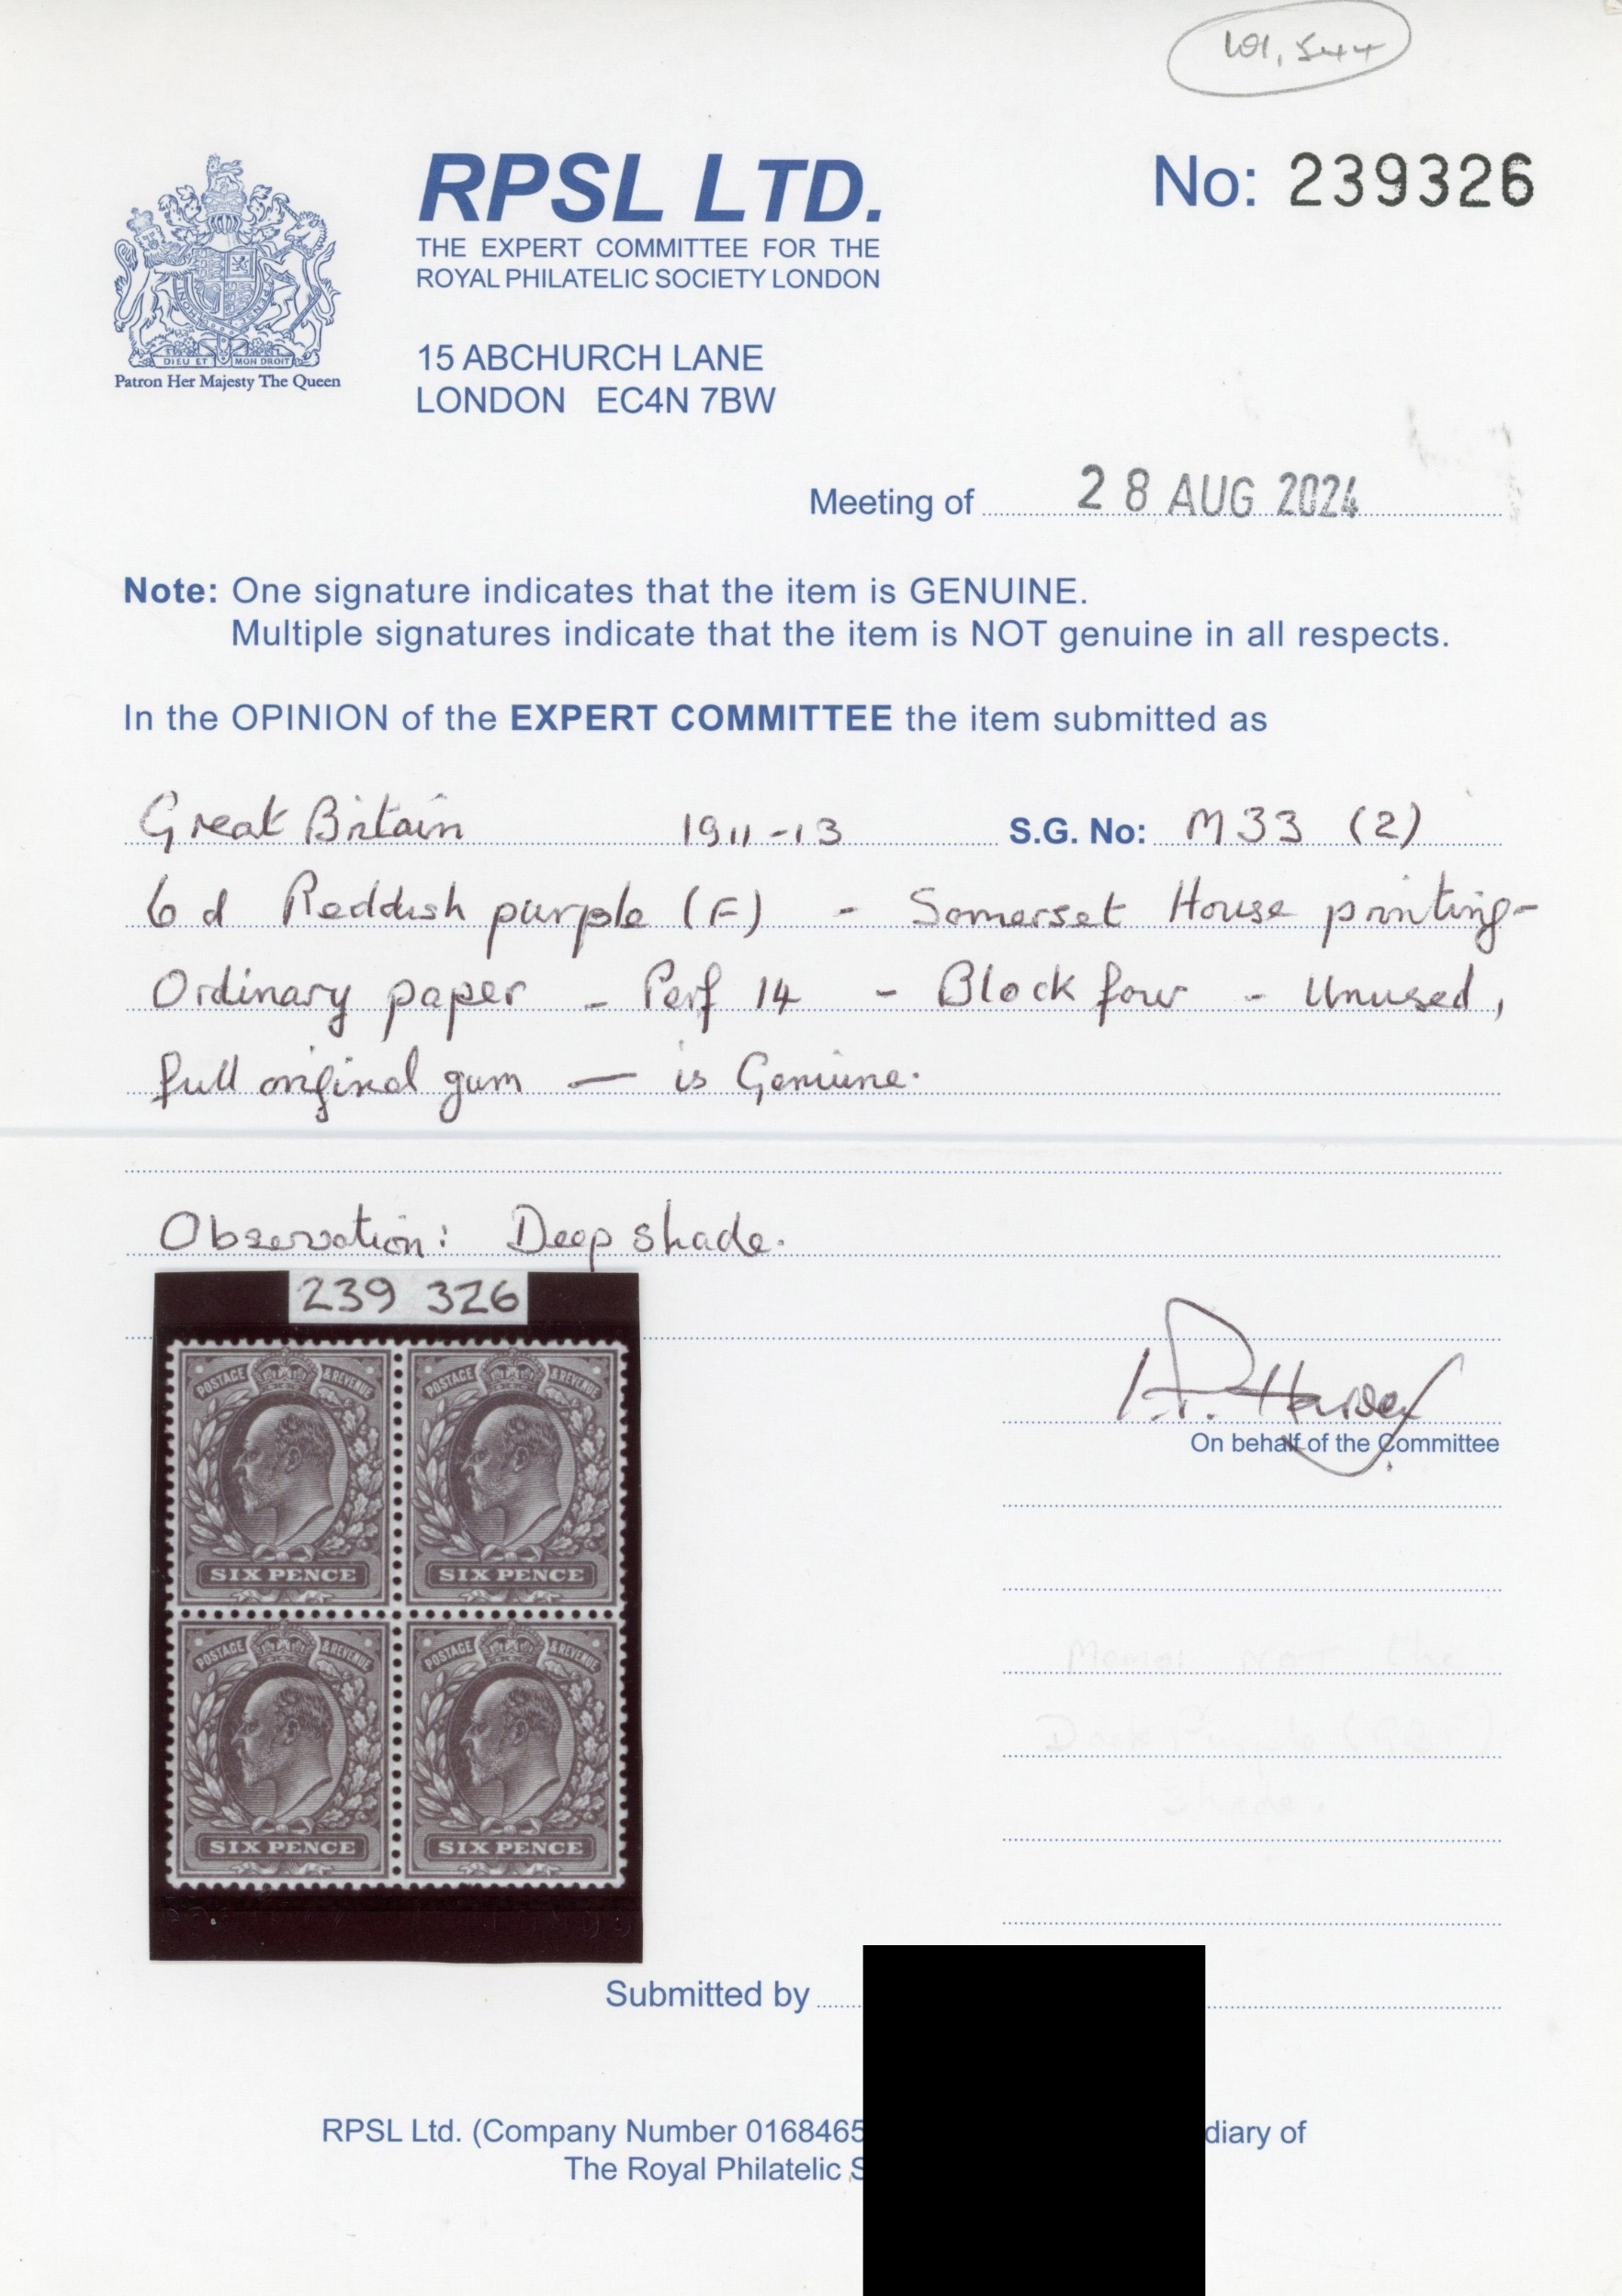 No: 239326
RPSL LTD.
THE EXPERT COMMITTEE FOR THE
ROYAL PHILATELIC SOCIETY LONDON
DIEU ET MON DROIT
Patron Her Majesty The Queen
15 ABCHURCH LANE
LONDON EC4N 7BW
Meeting of 28 AUG 2024
Note: One signature indicates that the item is GENUINE.
Multiple signatures indicate that the item is NOT genuine in all respects.
In the OPINION of the EXPERT COMMITTEE the item submitted as
Great Britain 1911-13 S.G. No: M33 (2)
6d Reddish purple (F) - Somerset House printing-
Ordinary paper - Perf 14 - Block four - Unused,
full original gum — is Genuine.
Observation: Deep shade.
239 326
POSTAGE & REVENUE POSTAGE & REVENUE
SIX PENCE SIX PENCE
POSTAGE & REVENUE POSTAGE & REVENUE
SIX PENCE SIX PENCE
On behalf of the Committee
Submitted by
RPSL Ltd. (Company Number 0168465 diary of
The Royal Philatelic S